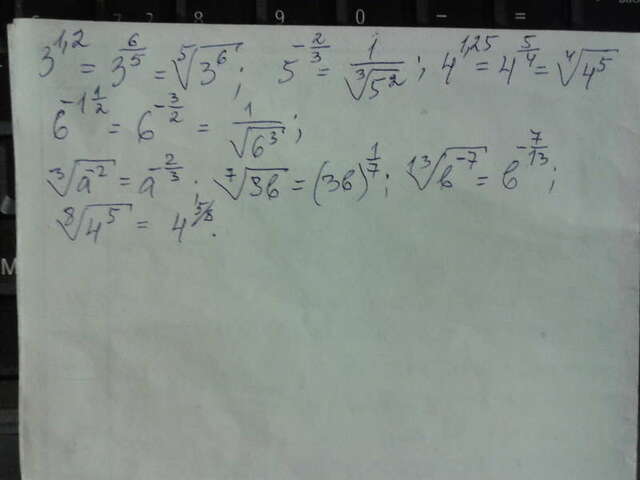 3^{1,2} = 3^{\frac{6}{5}} = \sqrt[5]{3^6}; 5^{-\frac{2}{3}} = \frac{1}{\sqrt[3]{5^2}}; 4^{1,25} = 4^{\frac{5}{4}} = \sqrt[4]{4^5}
6^{-1\frac{1}{2}} = 6^{-\frac{3}{2}} = \frac{1}{\sqrt{6^3}};
\sqrt[3]{a^{-2}} = a^{-\frac{2}{3}}; \sqrt[7]{3b} = (3b)^{\frac{1}{7}}; \sqrt[13]{b^{-7}} = b^{-\frac{7}{13}};
\sqrt[8]{4^5} = 4^{5/8}.